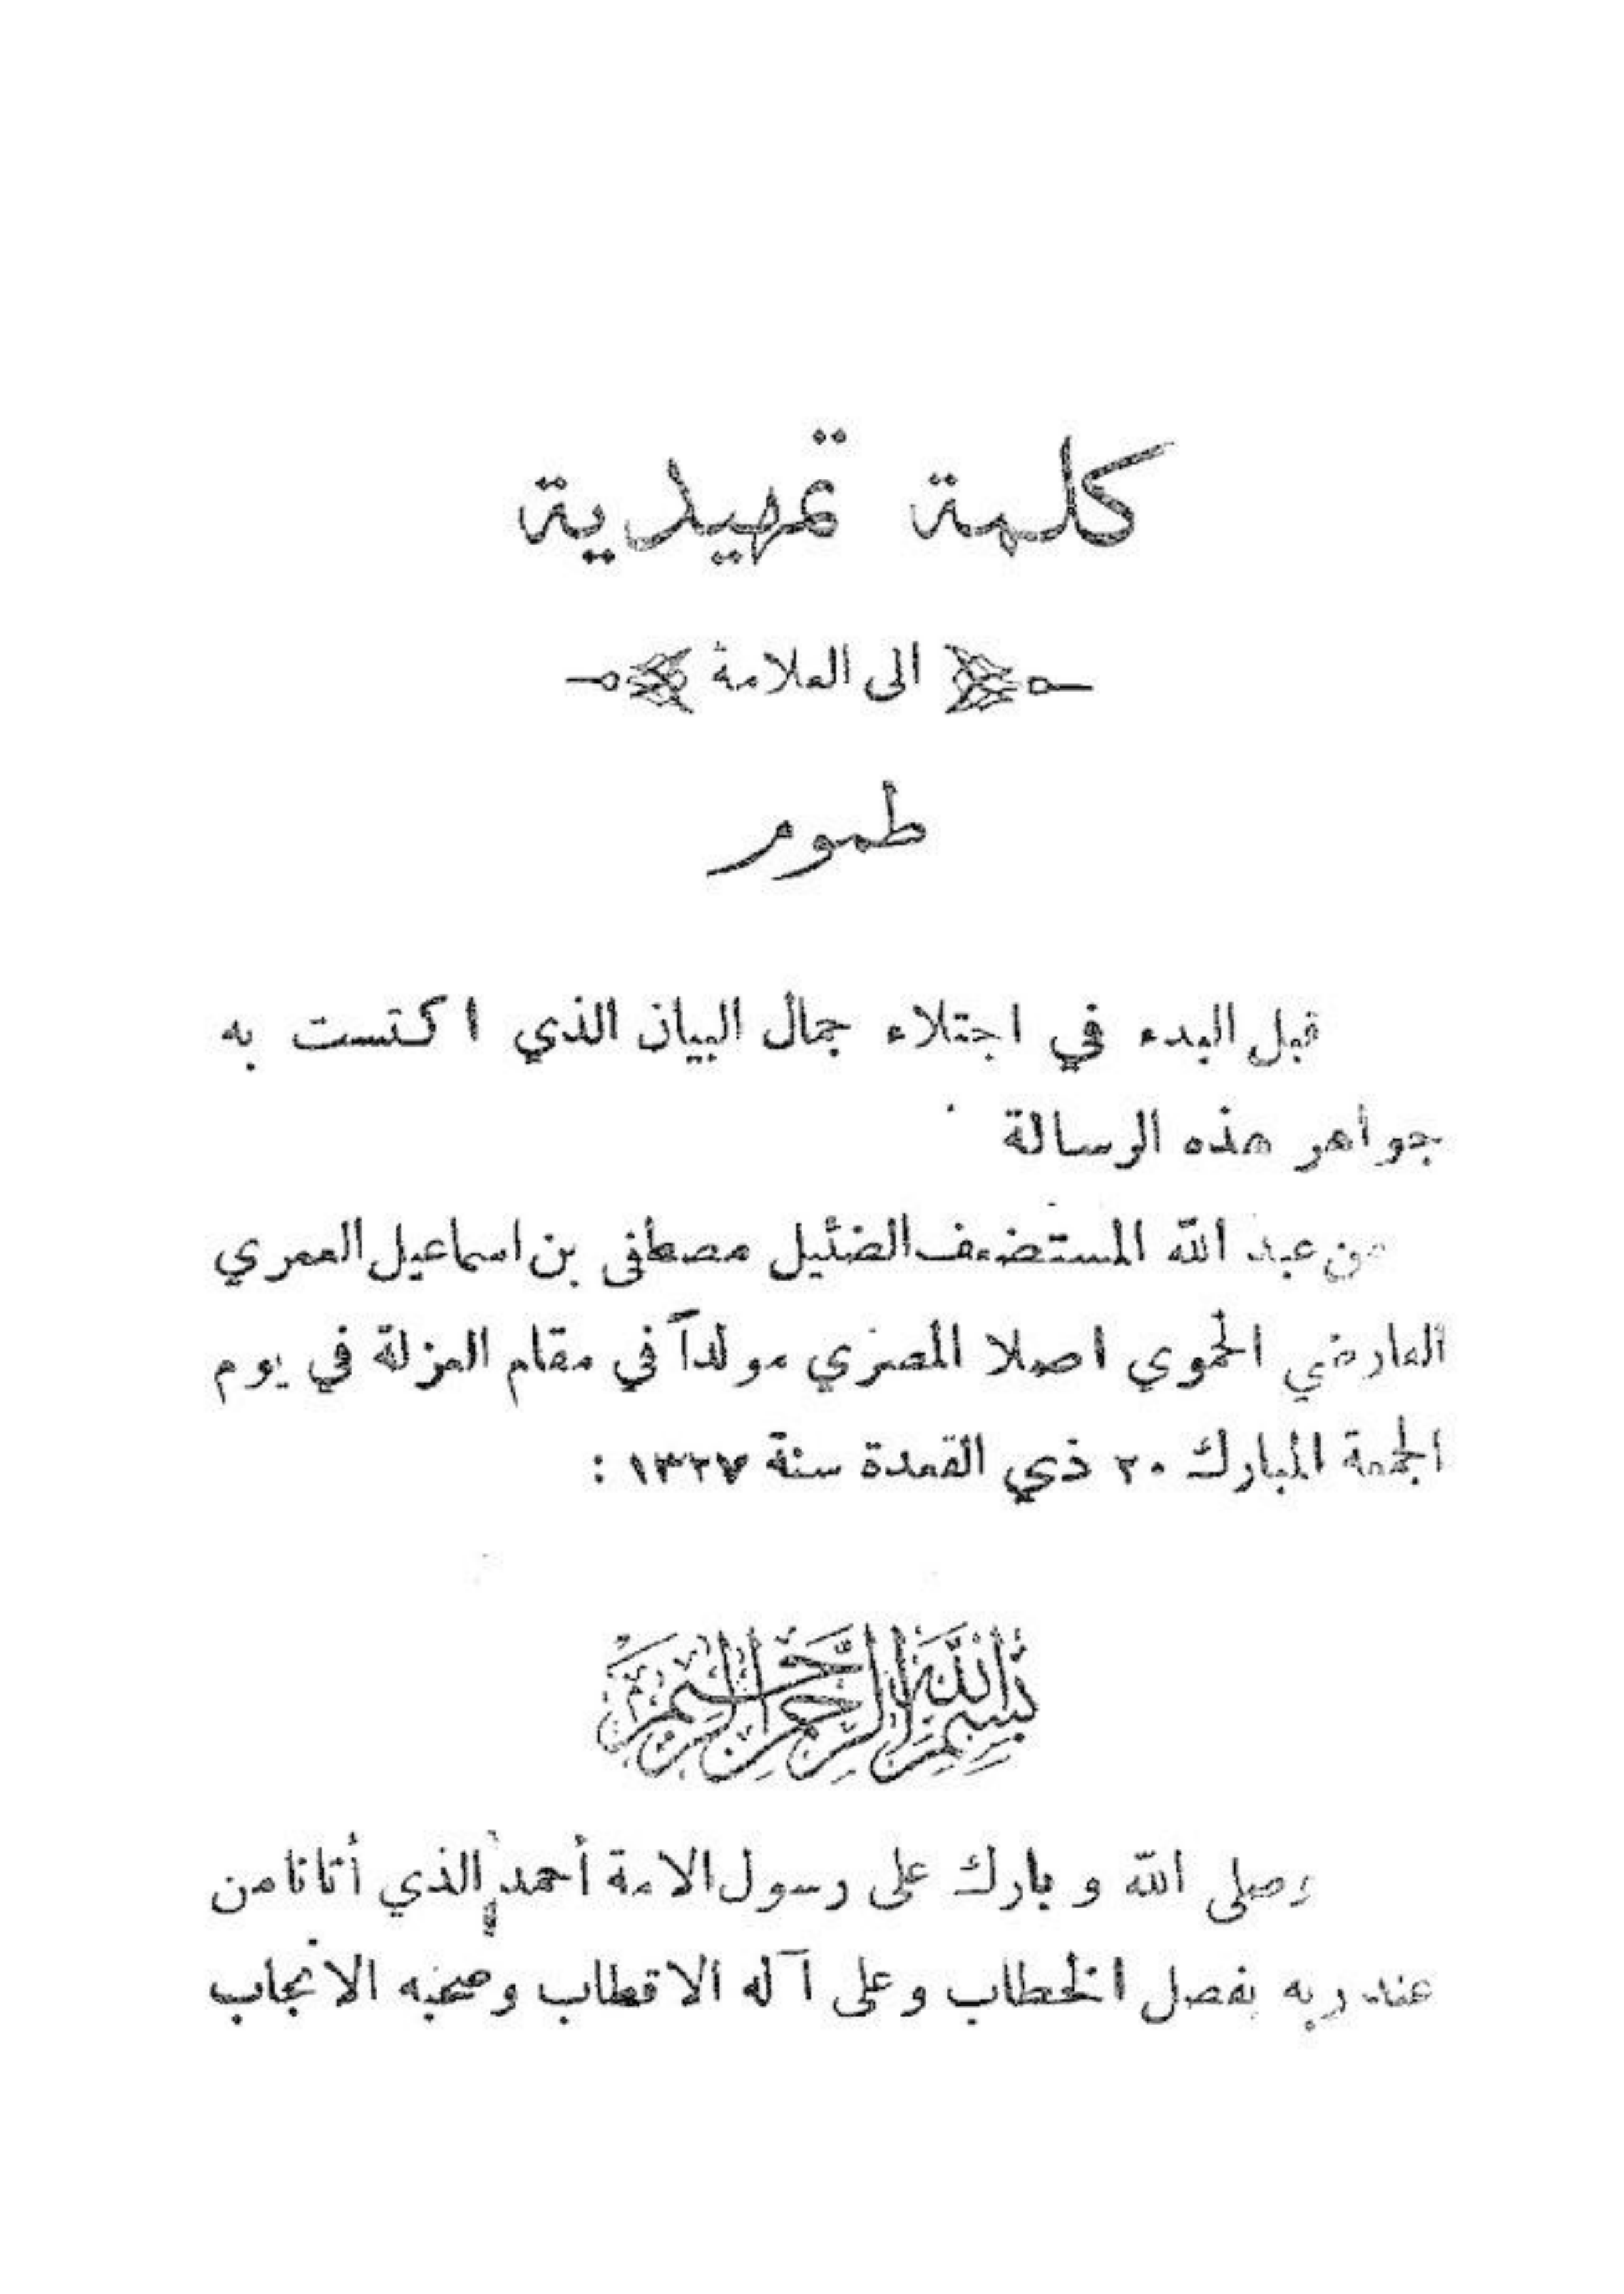 كلمة تمهيدية
الى العلامة
طموم
قبل البدء في اجتلاء جمال البيان الذي اكتست به
جواهر هذه الرسالة
من عبد الله المستضعف الضئيل مصطفى بن اسماعيل العمري
العارضي الحموي اصلا المصري مولداً في مقام العزلة في يوم
الجمعة المبارك ٢٠ ذي القعدة سنة ١٣٢٧ :
بسم الله الرحمن الرحيم
وصلى الله وبارك على رسول الامة أحمد الذي أتانا من
عند ربه بفصل الخطاب وعلى آله الاقطاب وصحبه الانجاب